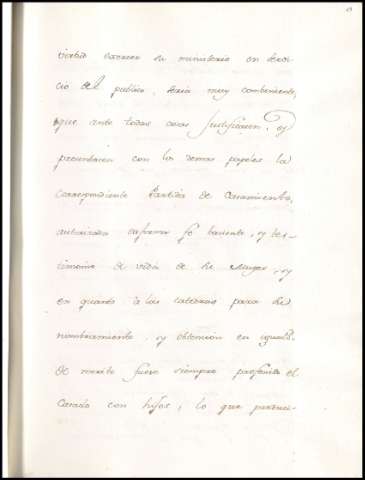 exercer su ministerio en servi-
cio del publico, seria muy combeniente,
que ante todas cosas justificasen, y
presentasen con los demas papeles la
correspondiente Partida de Casamiento,
autorizada en forma fe haciente, y tes-
timonio de vida de la Muger, y
en quanto à las catedras para el
nombramiento, y obtencion en igualdad
de merito fuere siempre preferido el
Casado con hijos, lo que